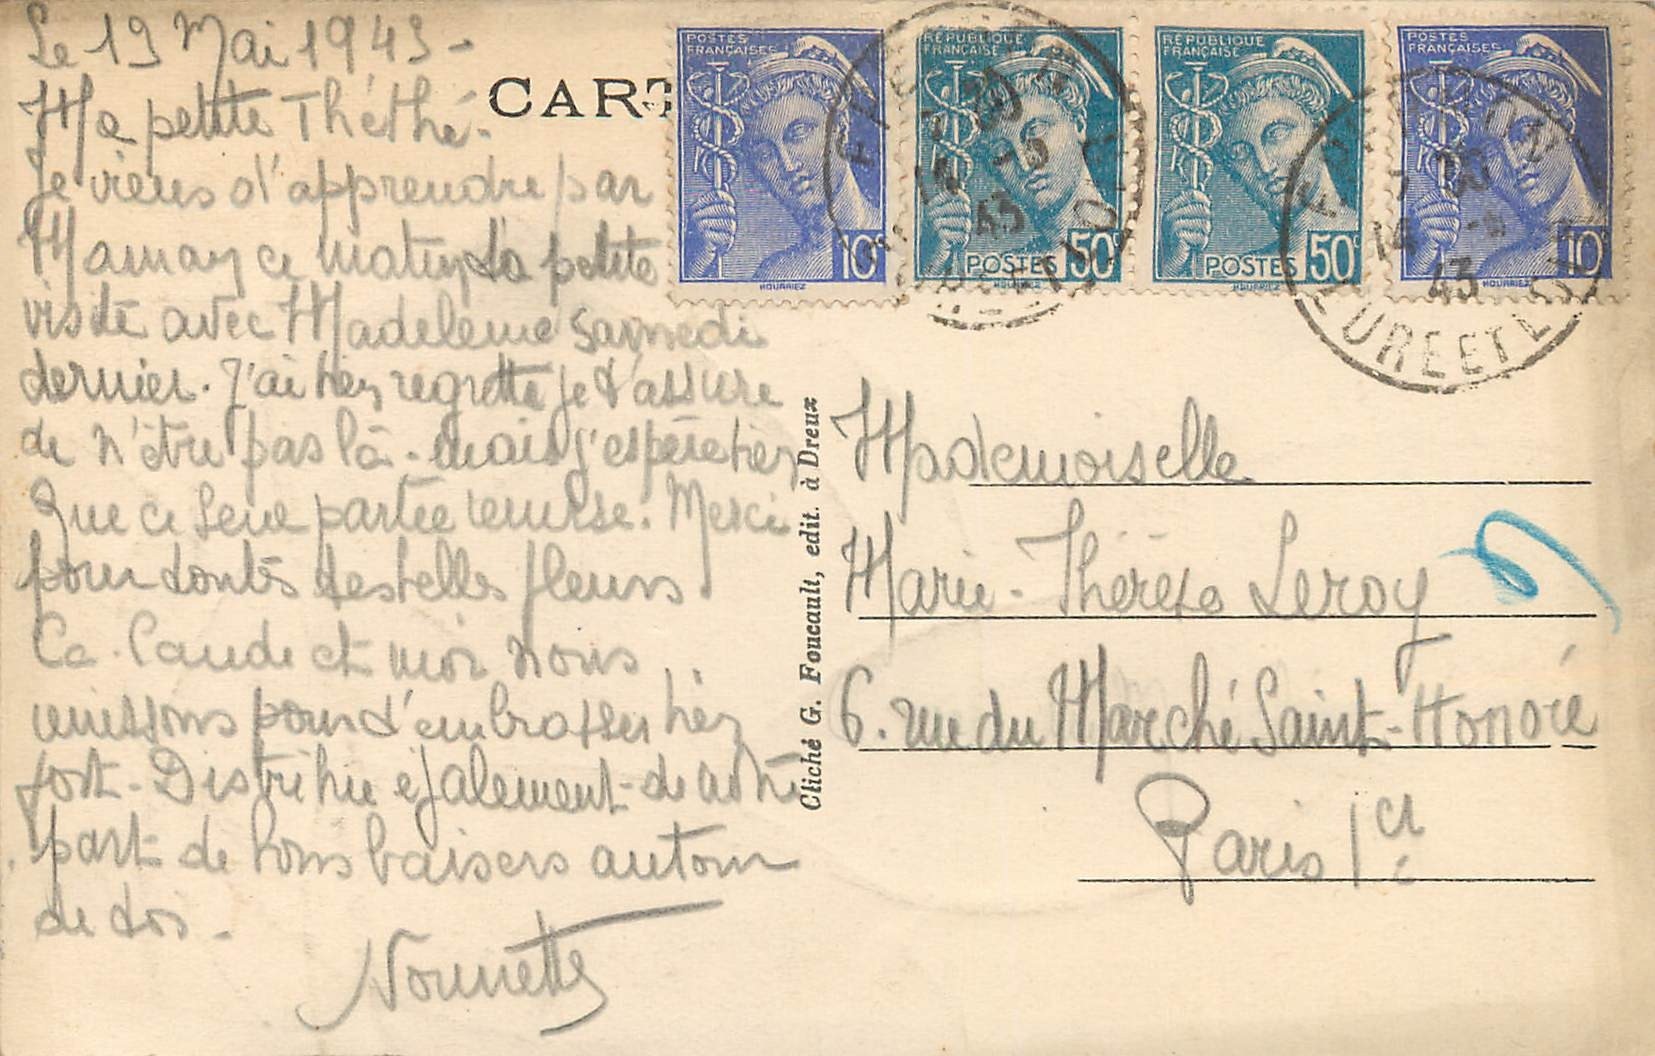 Le 13 Mai 1943 -
Ma petite Théthé.
Je viens d'apprendre par
Maman ce matin ta petite
visite avec Madeleine samedi
dernier. J'ai bien regretté je t'assure
de n'être pas là. mais j'espère bien
que ce sera partie remise. Merci
pour toutes tes belles fleurs.
Claude et moi nous
unissons pour t'embrasser bien
fort. Distribue également de notre
part de bons baisers autour
de toi.
Nounette
CART
POSTES
FRANÇAISES
10c
HOURRIEZ
RÉPUBLIQUE
FRANÇAISE
POSTES 50c
HOURRIEZ
RÉPUBLIQUE
FRANÇAISE
POSTES 50c
HOURRIEZ
POSTES
FRANÇAISES
10c
HOURRIEZ
14 -5
43
20
14
43
EURE ET L
Cliché G. Foucault, edit. à Dreux
Mademoiselle
Marie-Thérèse Leroy
6. rue du Marché Saint-Honoré
Paris 1er